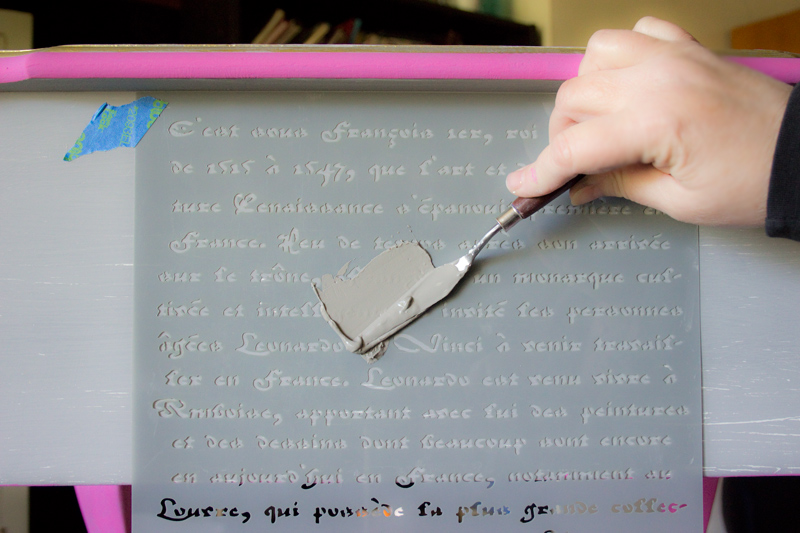 C'est sous François 1er, roi
de 1515 à 1547, que l'art et
ture Renaissance s'épanouit première en
France. Peu de temps après son arrivée
sur le trône, un monarque cul-
tivée et invité les personnes
âgées Leonardo Vinci à venir travail-
ler en France. Leonardo est venu vivre à
Amboise, apportant avec lui des peintures
et des dessins dont beaucoup sont encore
en aujourd'hui en France, notamment au
Louvre, qui possède la plus grande collec-